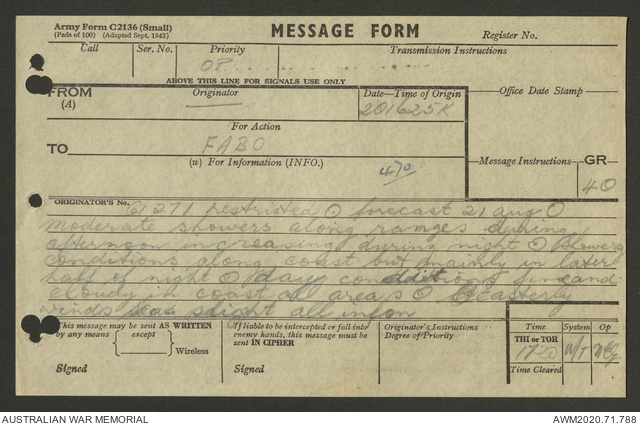 Army Form C2136 (Small)
(Pads of 100) (Adapted Sept. 1943)
MESSAGE FORM
Register No.
Call Ser. No. Priority Transmission Instructions
OP
ABOVE THIS LINE FOR SIGNALS USE ONLY
FROM
(A)
Originator
Date—Time of Origin
201625K
Office Date Stamp
For Action
TO
FABO
(w) For Information (INFO.)
470
Message Instructions
GR
40
ORIGINATOR'S No.
1271 restricted O forecast 21 aug O
moderate showers along ranges during
afternoon increasing during night O showery
conditions along coast but mainly in later
half of night O day conditions fine and
cloudy coast all areas O Easterly
winds seas slight all infon
This message may be sent AS WRITTEN
by any means except
Wireless
Signed
If liable to be intercepted or fall into
enemy hands, this message must be
sent IN CIPHER
Signed
Originator's Instructions
Degree of Priority
Time System Op
THI or TOR
W/T
Time Cleared
AUSTRALIAN WAR MEMORIAL
AWM2020.71.788